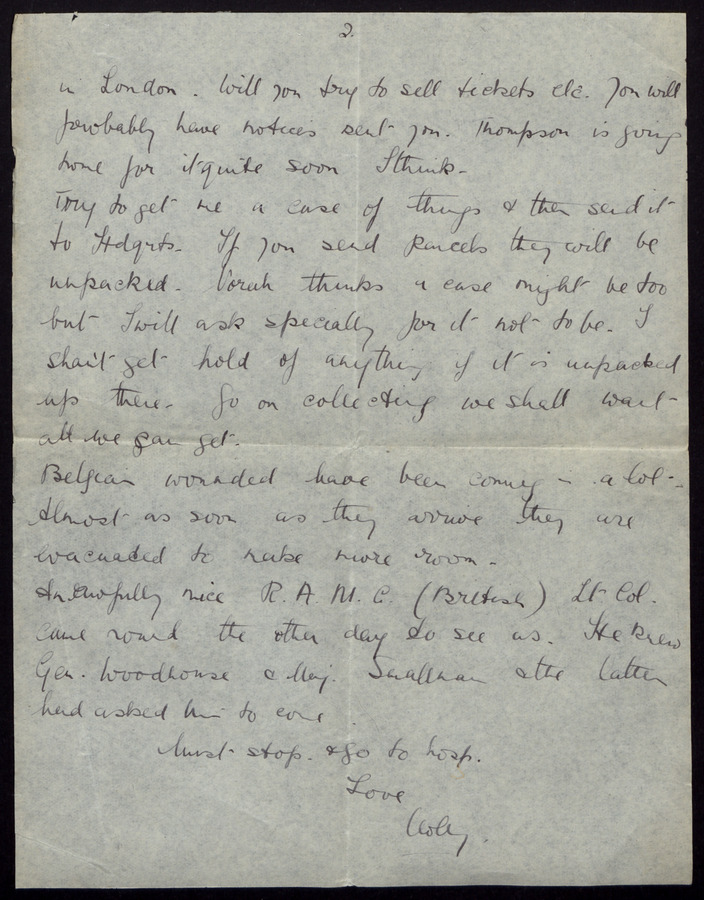 2.
in London. Will you try to sell tickets etc. You will
probably have notices sent you. Thompson is going
home for it quite soon I think.
Try to get me a case of things & then send it
to Hdqrts. If you send parcels they will be
unpacked. Vorah thinks a case might be too
but I will ask specially for it not to be. I
shan't get hold of anything if it is unpacked
up there. Go on collecting we shall want
all we can get.
Belgian wounded have been coming in a lot.
Almost as soon as they arrive they are
evacuated to make more room.
An awfully nice R.A.M.C. (British) Lt Col.
came round the other day to see us. He knew
Gen. Woodhouse & Maj. Smallman & the latter
had asked him to come.
Must stop. & go to hosp.
Love